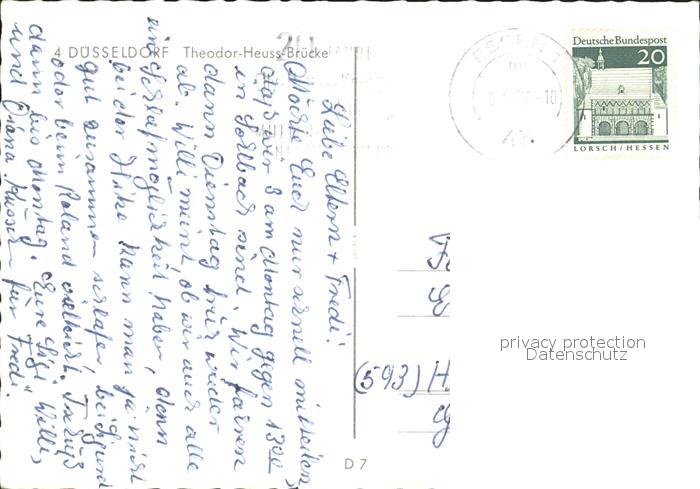 4 DÜSSELDORF Theodor-Heuss-Brücke
Liebe Eltern + Fredi!
Möchte Euch nur schnell mitteilen,
daß wir 3 am Montag gegen 13 00
in sind. Wir fahren
dann Dienstag früh wieder
ab. Willi meint, ob wir auch alle
eine Schlafmöglichkeit haben, denn
bei der Heike kann man ja nicht
gut zusammen schlafen,
oder beim Roland vielleicht. Tschüß
dann bis Montag. Eure Sigi Willi,
und Diana Küsschen für Fredi.
ESSEN 1
43
Deutsche Bundespost
20
LORSCH/HESSEN
(593) H
privacy protection
Datenschutz
D 7